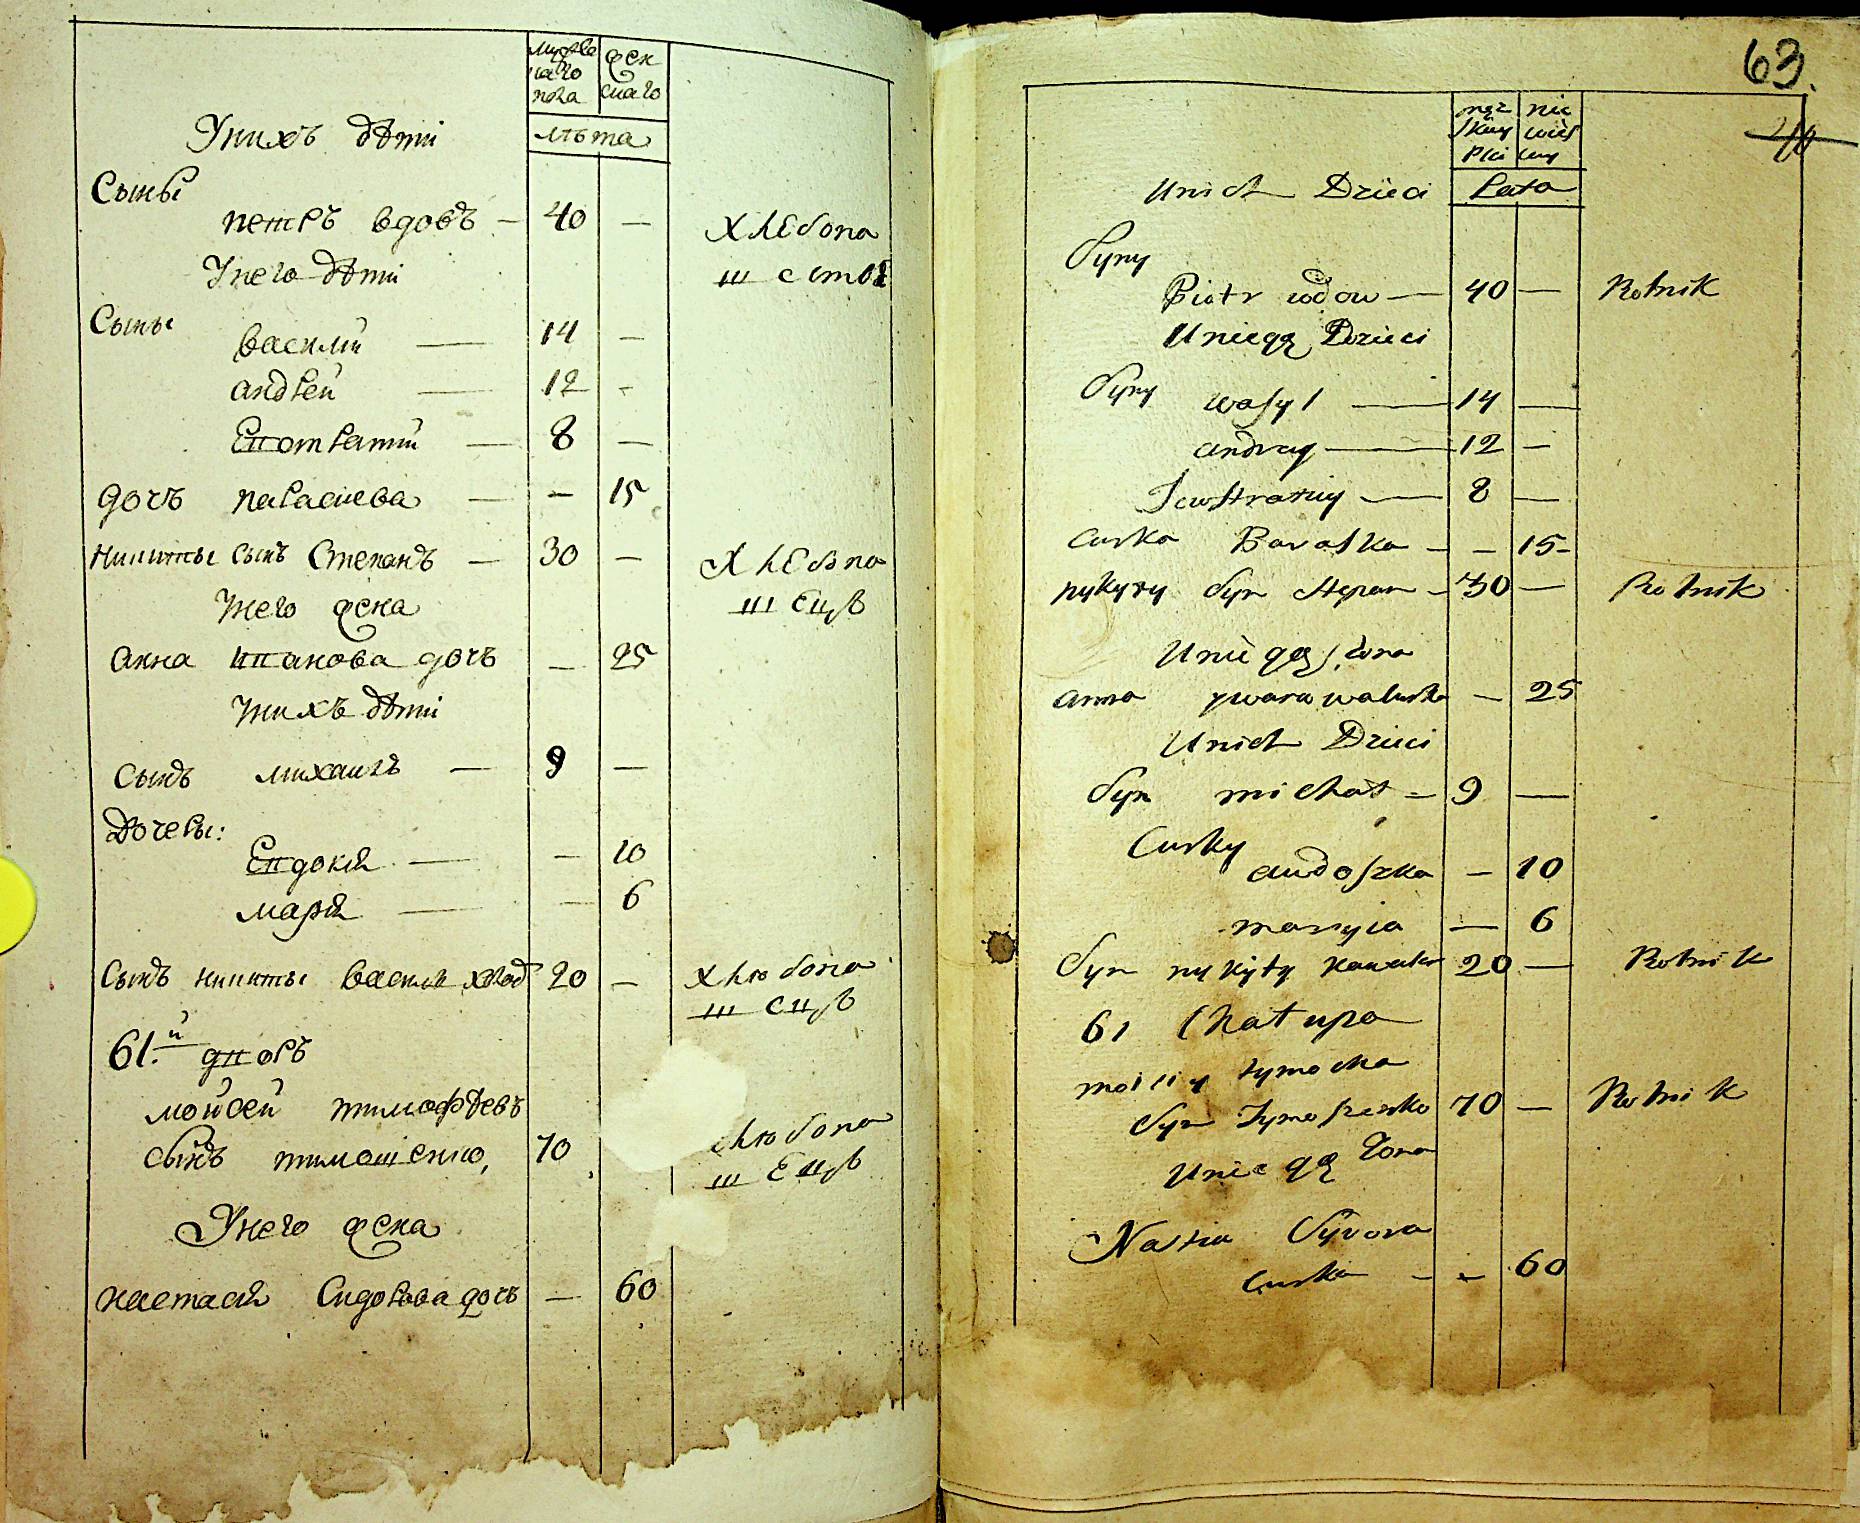 мужеска
го
пола
жен
скаго
лѣта
У нихъ дѣти
Сыны
петръ вдовъ — 40 —
Хлебопа
шество
У него дѣти
Сыны
василий — 14 —
андрей — 12 -
Евстратий — 8 —
дочъ параскева — — 15
Никиты сынъ Степанъ — 30 —
Хлебопа
шецъ
У него жена
Анна иванова дочъ — 25
У нихъ дѣти
сынъ михаилъ — 9 —
Дочеры:
Евдокия — — 10
мария — — 6
Сынъ никиты василь холос 20 —
хлѣбопа
шецъ
61.й дворъ
мойсей тимофѣевъ
сынъ тимошенко, 70
хлѣбопа
шецъ
У него жена
настасия Сидорова дочъ — 60
63.
męz
skiey
Płci
nie
wies
cey
Lata
Unich Dzieci
Syny
Piotr wdow — 40 — Rolnik
Uniegę Dzieci
Syny wasyl — 14 —
andrey — 12 —
Iewstratiy — 8 —
Curka Paraska — — 15-
nykyty Syn Stepan — 30 — Rolnik
Uniegę żona
anna ywanowa curka — 25
Unich Dzieci
Syn michał — 9 —
Curky
audoszka — 10
maryia — 6
Syn nykyty kawaler 20 — Rolnik
61 Chałupa
moisiy tymocha
Syn Tymoszenko 70 — Rolnik
Uniegę żona
Nastia Sydora
Curka - - 60